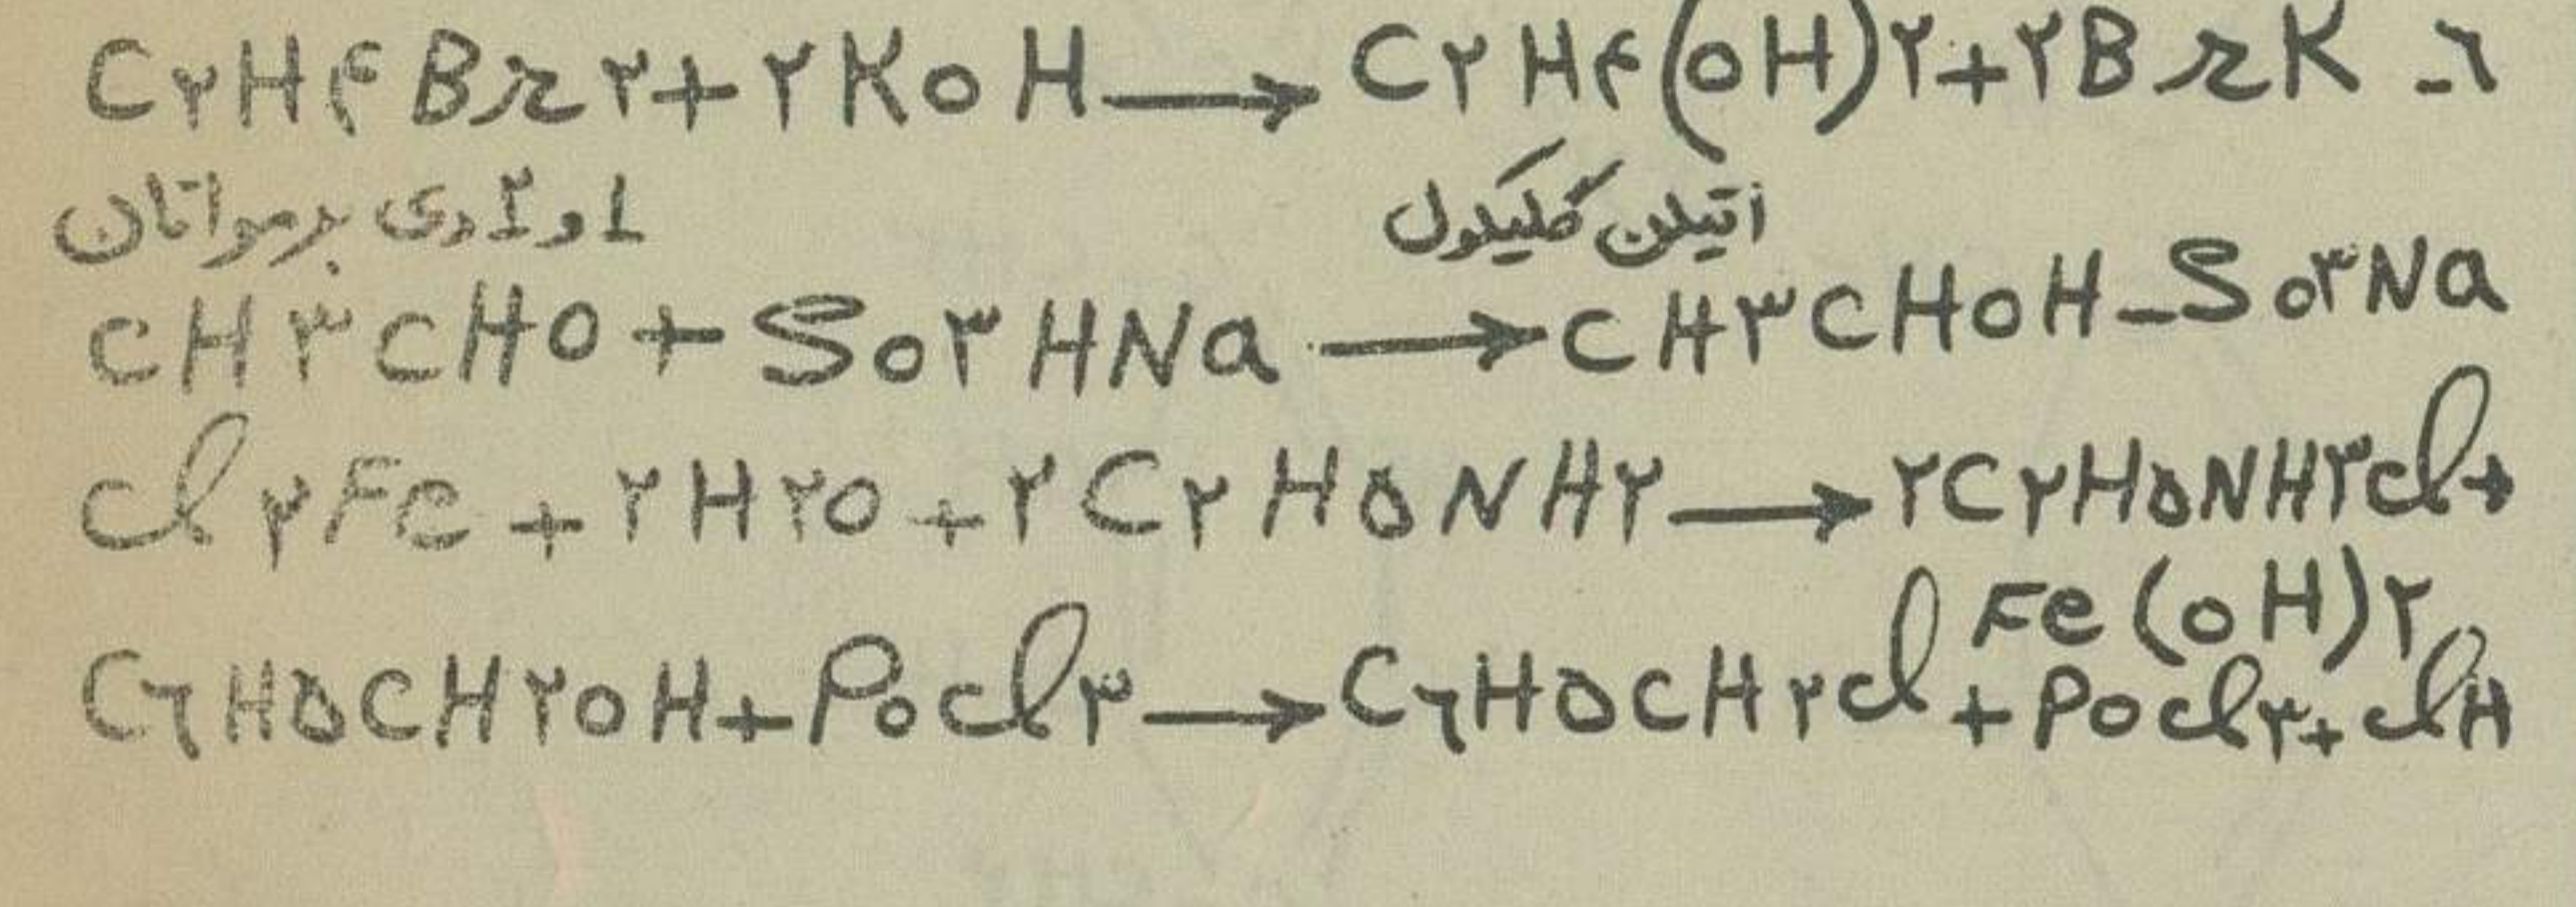 C۲H۴Br۲+۲KOH→C۲H۴(OH)۲+۲BrK -٦
۱ و ۲ دی برمواتان اتیلن گلیکول
CH۳CHO+SO۳HNa→CH۳CHOH-SO۳Na
Cl۲Fe+۲H۲O+۲C۲H۵NH۲→۲C۲H۵NH۳Cl+
Fe(OH)۲
C٦H۵CH۲OH+POCl۳→C٦H۵CH۲Cl+POCl۲+ClH